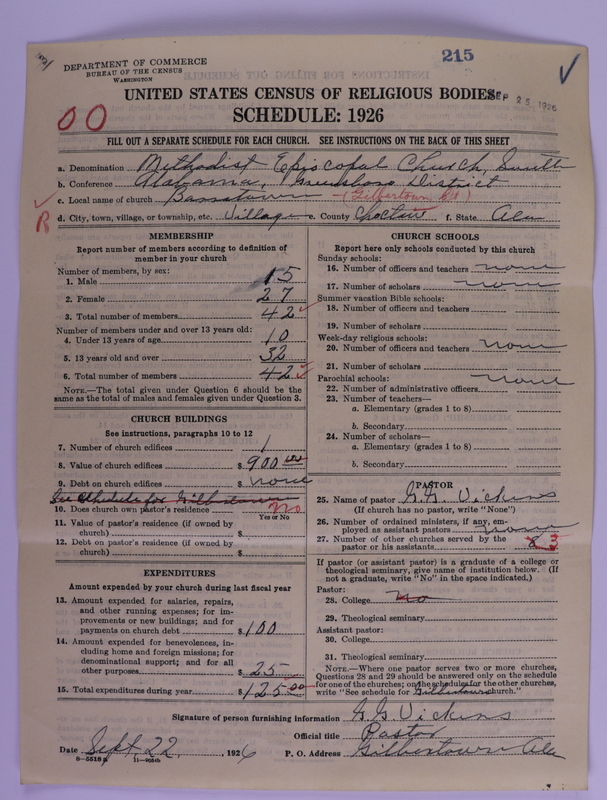 215
DEPARTMENT OF COMMERCE
BUREAU OF THE CENSUS
WASHINGTON
UNITED STATES CENSUS OF RELIGIOUS BODIES
SEP 25 1926
SCHEDULE: 1926
00
FILL OUT A SEPARATE SCHEDULE FOR EACH CHURCH. SEE INSTRUCTIONS ON THE BACK OF THIS SHEET
a. Denomination Methodist Episcopal Church, South
b. Conference Alabama, Greensboro District
c. Local name of church (Gilbertown Ct)
R d. City, town, village, or township, etc. Village e. County Choctaw f. State Ala
MEMBERSHIP
Report number of members according to definition of
member in your church
Number of members, by sex:
1. Male 15
2. Female 27
3. Total number of members 42
Number of members under and over 13 years old:
4. Under 13 years of age 10
5. 13 years old and over 32
6. Total number of members 42
NOTE.—The total given under Question 6 should be
the same as the total of males and females given under Question 3.
CHURCH BUILDINGS
See instructions, paragraphs 10 to 12
7. Number of church edifices 1
8. Value of church edifices $ 900.00
9. Debt on church edifices $ none
See schedule for Gilbertown
10. Does church own pastor's residence No
Yes or No
11. Value of pastor's residence (if owned by
church) $
12. Debt on pastor's residence (if owned by
church) $
EXPENDITURES
Amount expended by your church during last fiscal year
13. Amount expended for salaries, repairs,
and other running expenses; for im-
provements or new buildings; and for
payments on church debt $ 100
14. Amount expended for benevolences, in-
cluding home and foreign missions; for
denominational support; and for all
other purposes $ 25
15. Total expenditures during year $ 125.00
CHURCH SCHOOLS
Report here only schools conducted by this church
Sunday schools:
16. Number of officers and teachers none
17. Number of scholars none
Summer vacation Bible schools:
18. Number of officers and teachers
19. Number of scholars
Week-day religious schools:
20. Number of officers and teachers none
21. Number of scholars
Parochial schools:
22. Number of administrative officers none
23. Number of teachers—
a. Elementary (grades 1 to 8)
b. Secondary
24. Number of scholars—
a. Elementary (grades 1 to 8)
b. Secondary
PASTOR
25. Name of pastor G. G. Vickins
(If church has no pastor, write "None")
26. Number of ordained ministers, if any, em-
ployed as assistant pastors none
27. Number of other churches served by the
pastor or his assistants 8 3
If pastor (or assistant pastor) is a graduate of a college or
theological seminary, give name of institution below. (If
not a graduate, write "No" in the space indicated.)
Pastor:
28. College No
29. Theological seminary
Assistant pastor:
30. College
31. Theological seminary
NOTE.—Where one pastor serves two or more churches,
Questions 28 and 29 should be answered only on the schedule
for one of the churches; on the schedules for the other churches,
write "See schedule for Gilbertown church."
Signature of person furnishing information G. G. Vickins
Official title Pastor
Date Sept 22, 1926 P. O. Address Gilbertown Ala
8—5518a 11—9054b